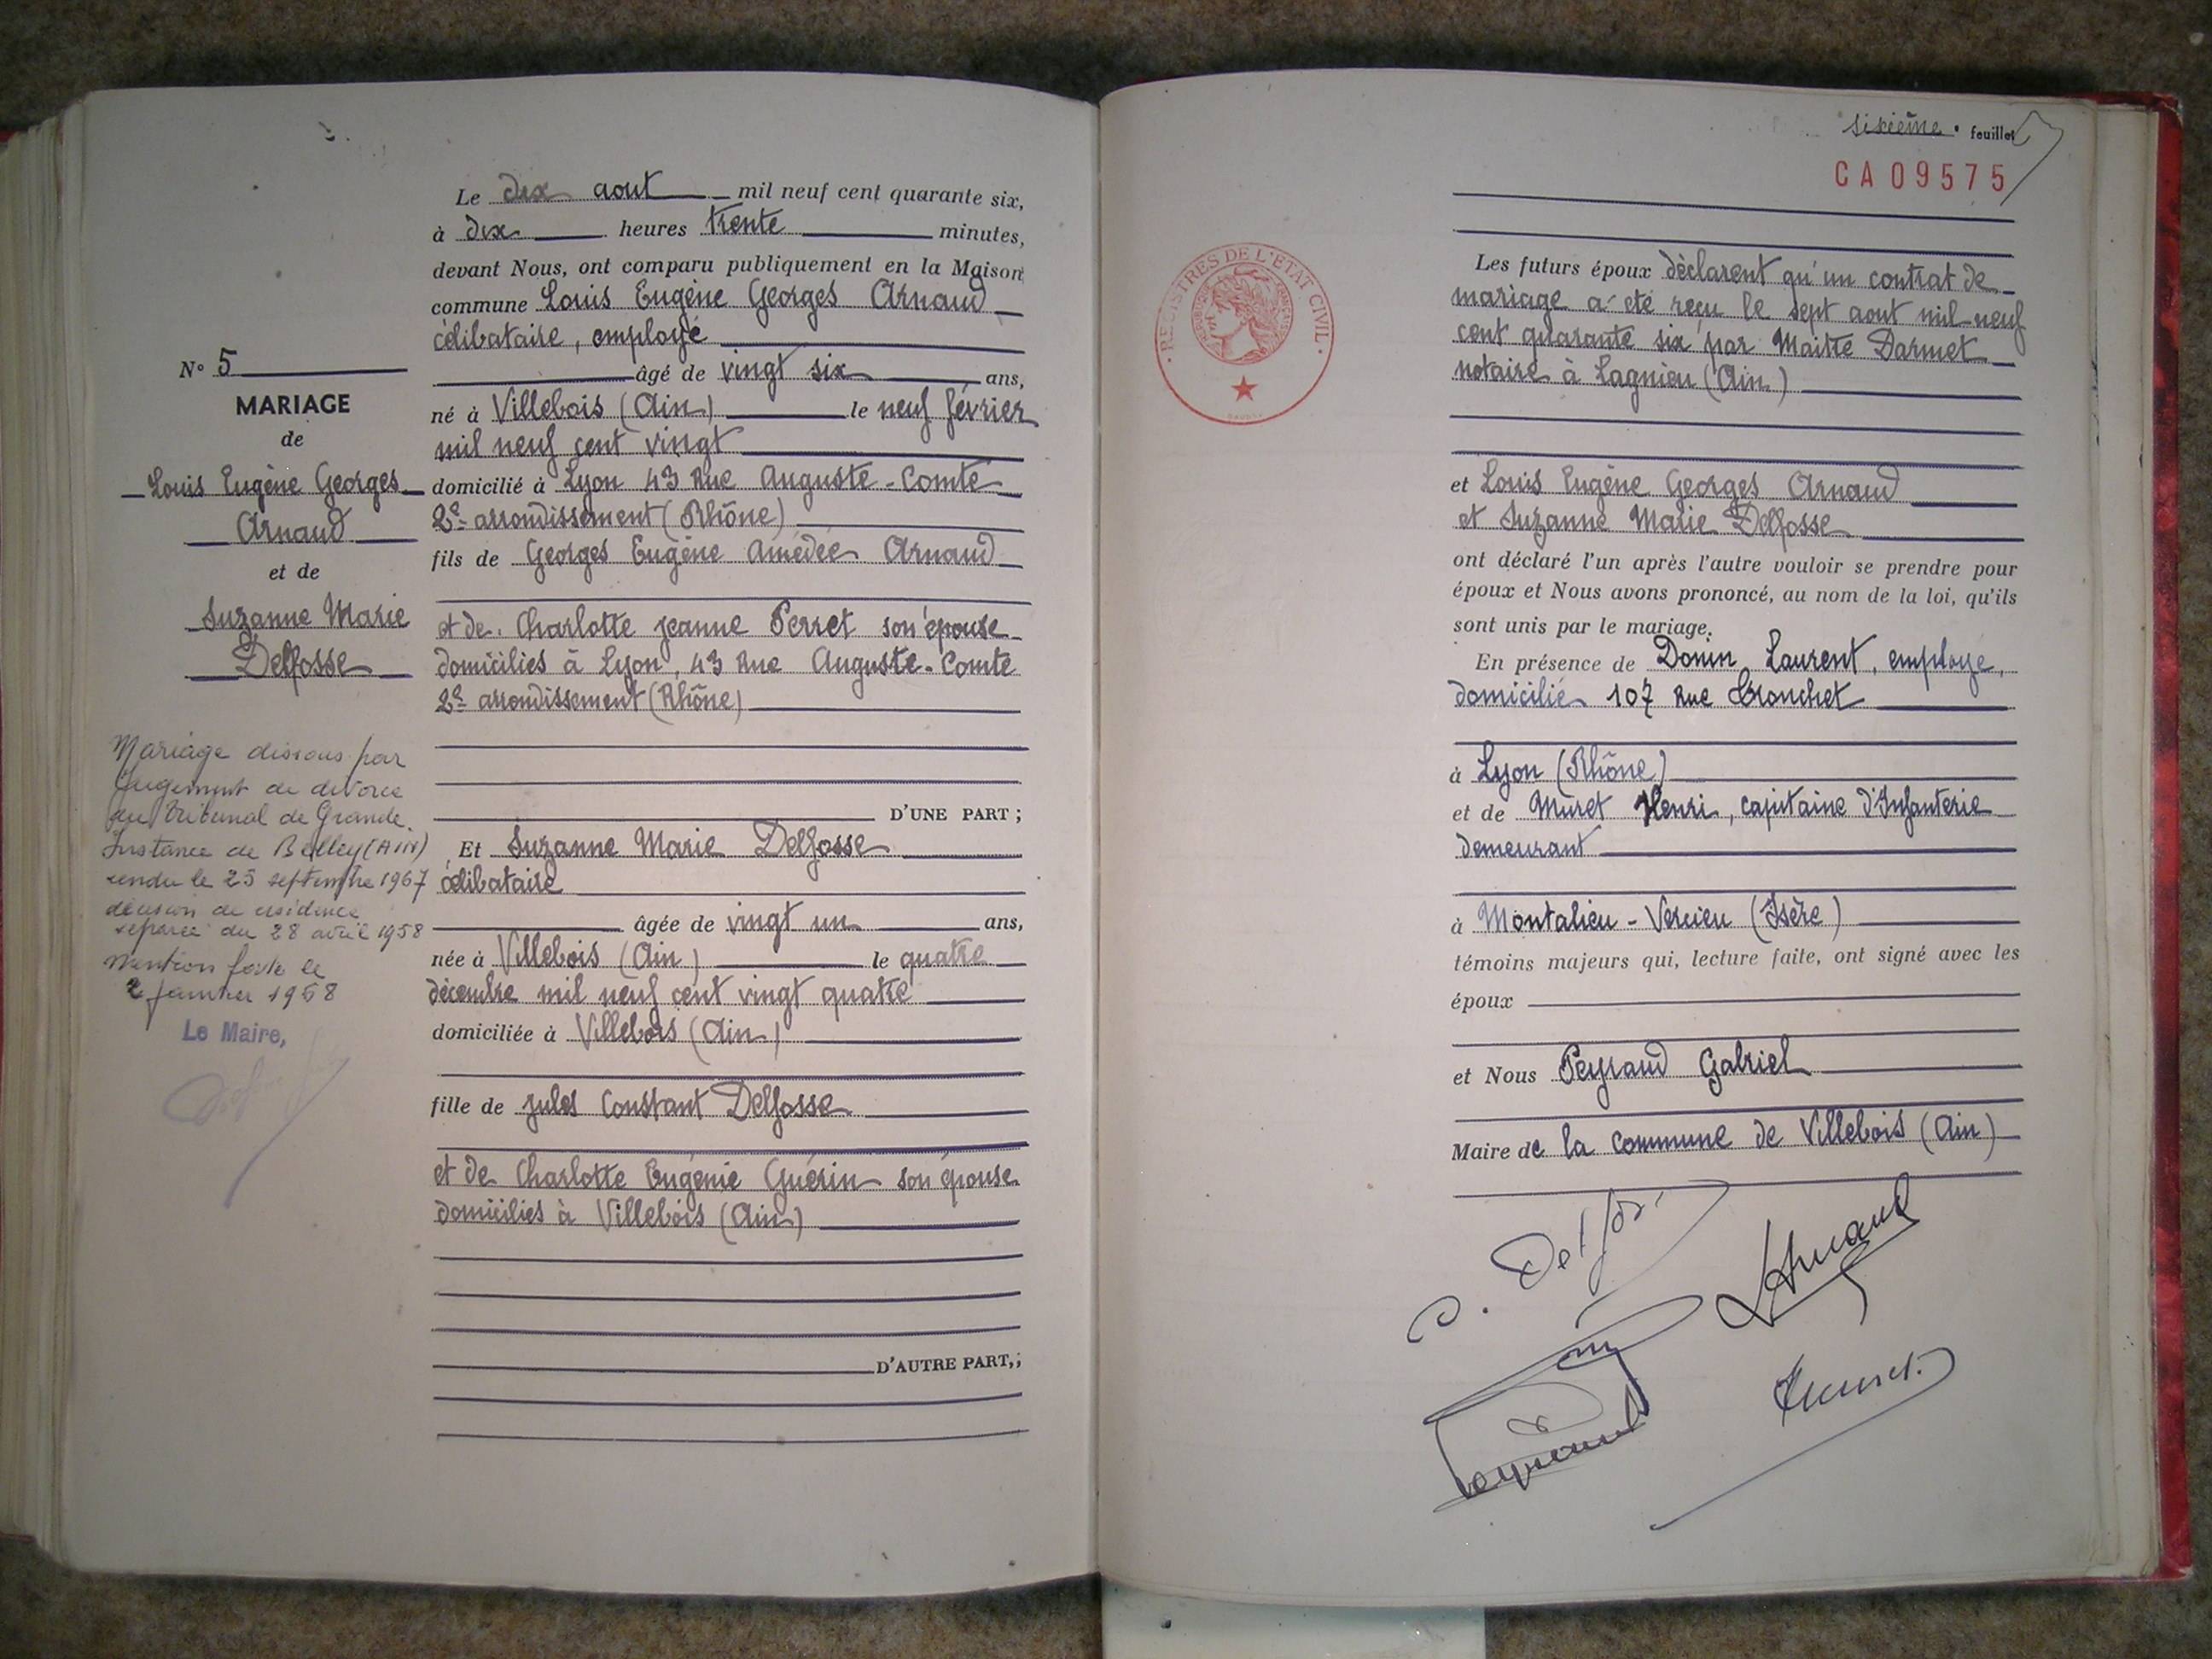 N° 5
MARIAGE
de
Louis Eugène Georges
Arnaud
et de
Suzanne Marie
Delfosse
Mariage dissous par
jugement de divorce
du Tribunal de Grande
Instance de Belley (AIN)
rendu le 25 septembre 1967
décision de résidence
séparée du 28 avril 1958
Mention faite le
2 janvier 1958
Le Maire,
Le dix aout mil neuf cent quarante six,
à dix heures trente minutes,
devant Nous, ont comparu publiquement en la Maison
commune Louis Eugène Georges Arnaud
célibataire, employé
âgé de vingt six ans,
né à Villebois (Ain) le neuf février
mil neuf cent vingt
domicilié à Lyon 43 Rue Auguste-Comte
2e arrondissement (Rhône)
fils de Georges Eugène Amédée Arnaud
et de Charlotte Jeanne Perret son épouse
domiciliés à Lyon, 43 Rue Auguste-Comte
2e arrondissement (Rhône)
D'UNE PART ;
Et Suzanne Marie Delfosse
célibataire
âgée de vingt un ans,
née à Villebois (Ain) le quatre
décembre mil neuf cent vingt quatre
domiciliée à Villebois (Ain)
fille de Jules Constant Delfosse
et de Charlotte Eugénie Guérin son épouse
domiciliés à Villebois (Ain)
D'AUTRE PART,;
sixième feuillet
CA09575
REGISTRES DE L'ETAT CIVIL
Les futurs époux déclarent qu'un contrat de
mariage a été reçu le sept aout mil neuf
cent quarante six par Maitre Darmet
notaire à Lagnieu (Ain)
et Louis Eugène Georges Arnaud
et Suzanne Marie Delfosse
ont déclaré l'un après l'autre vouloir se prendre pour
époux et Nous avons prononcé, au nom de la loi, qu'ils
sont unis par le mariage.
En présence de Donin Laurent, employé,
domicilié 107 Rue Cronchet
à Lyon (Rhône)
et de Muret Henri, capitaine d'Infanterie
demeurant
à Montalieu-Vercieu (Isère)
témoins majeurs qui, lecture faite, ont signé avec les
époux
et Nous Peyraud Gabriel
Maire de la commune de Villebois (Ain)
S. Delfosse
LArnaud
Muret
Peyraud